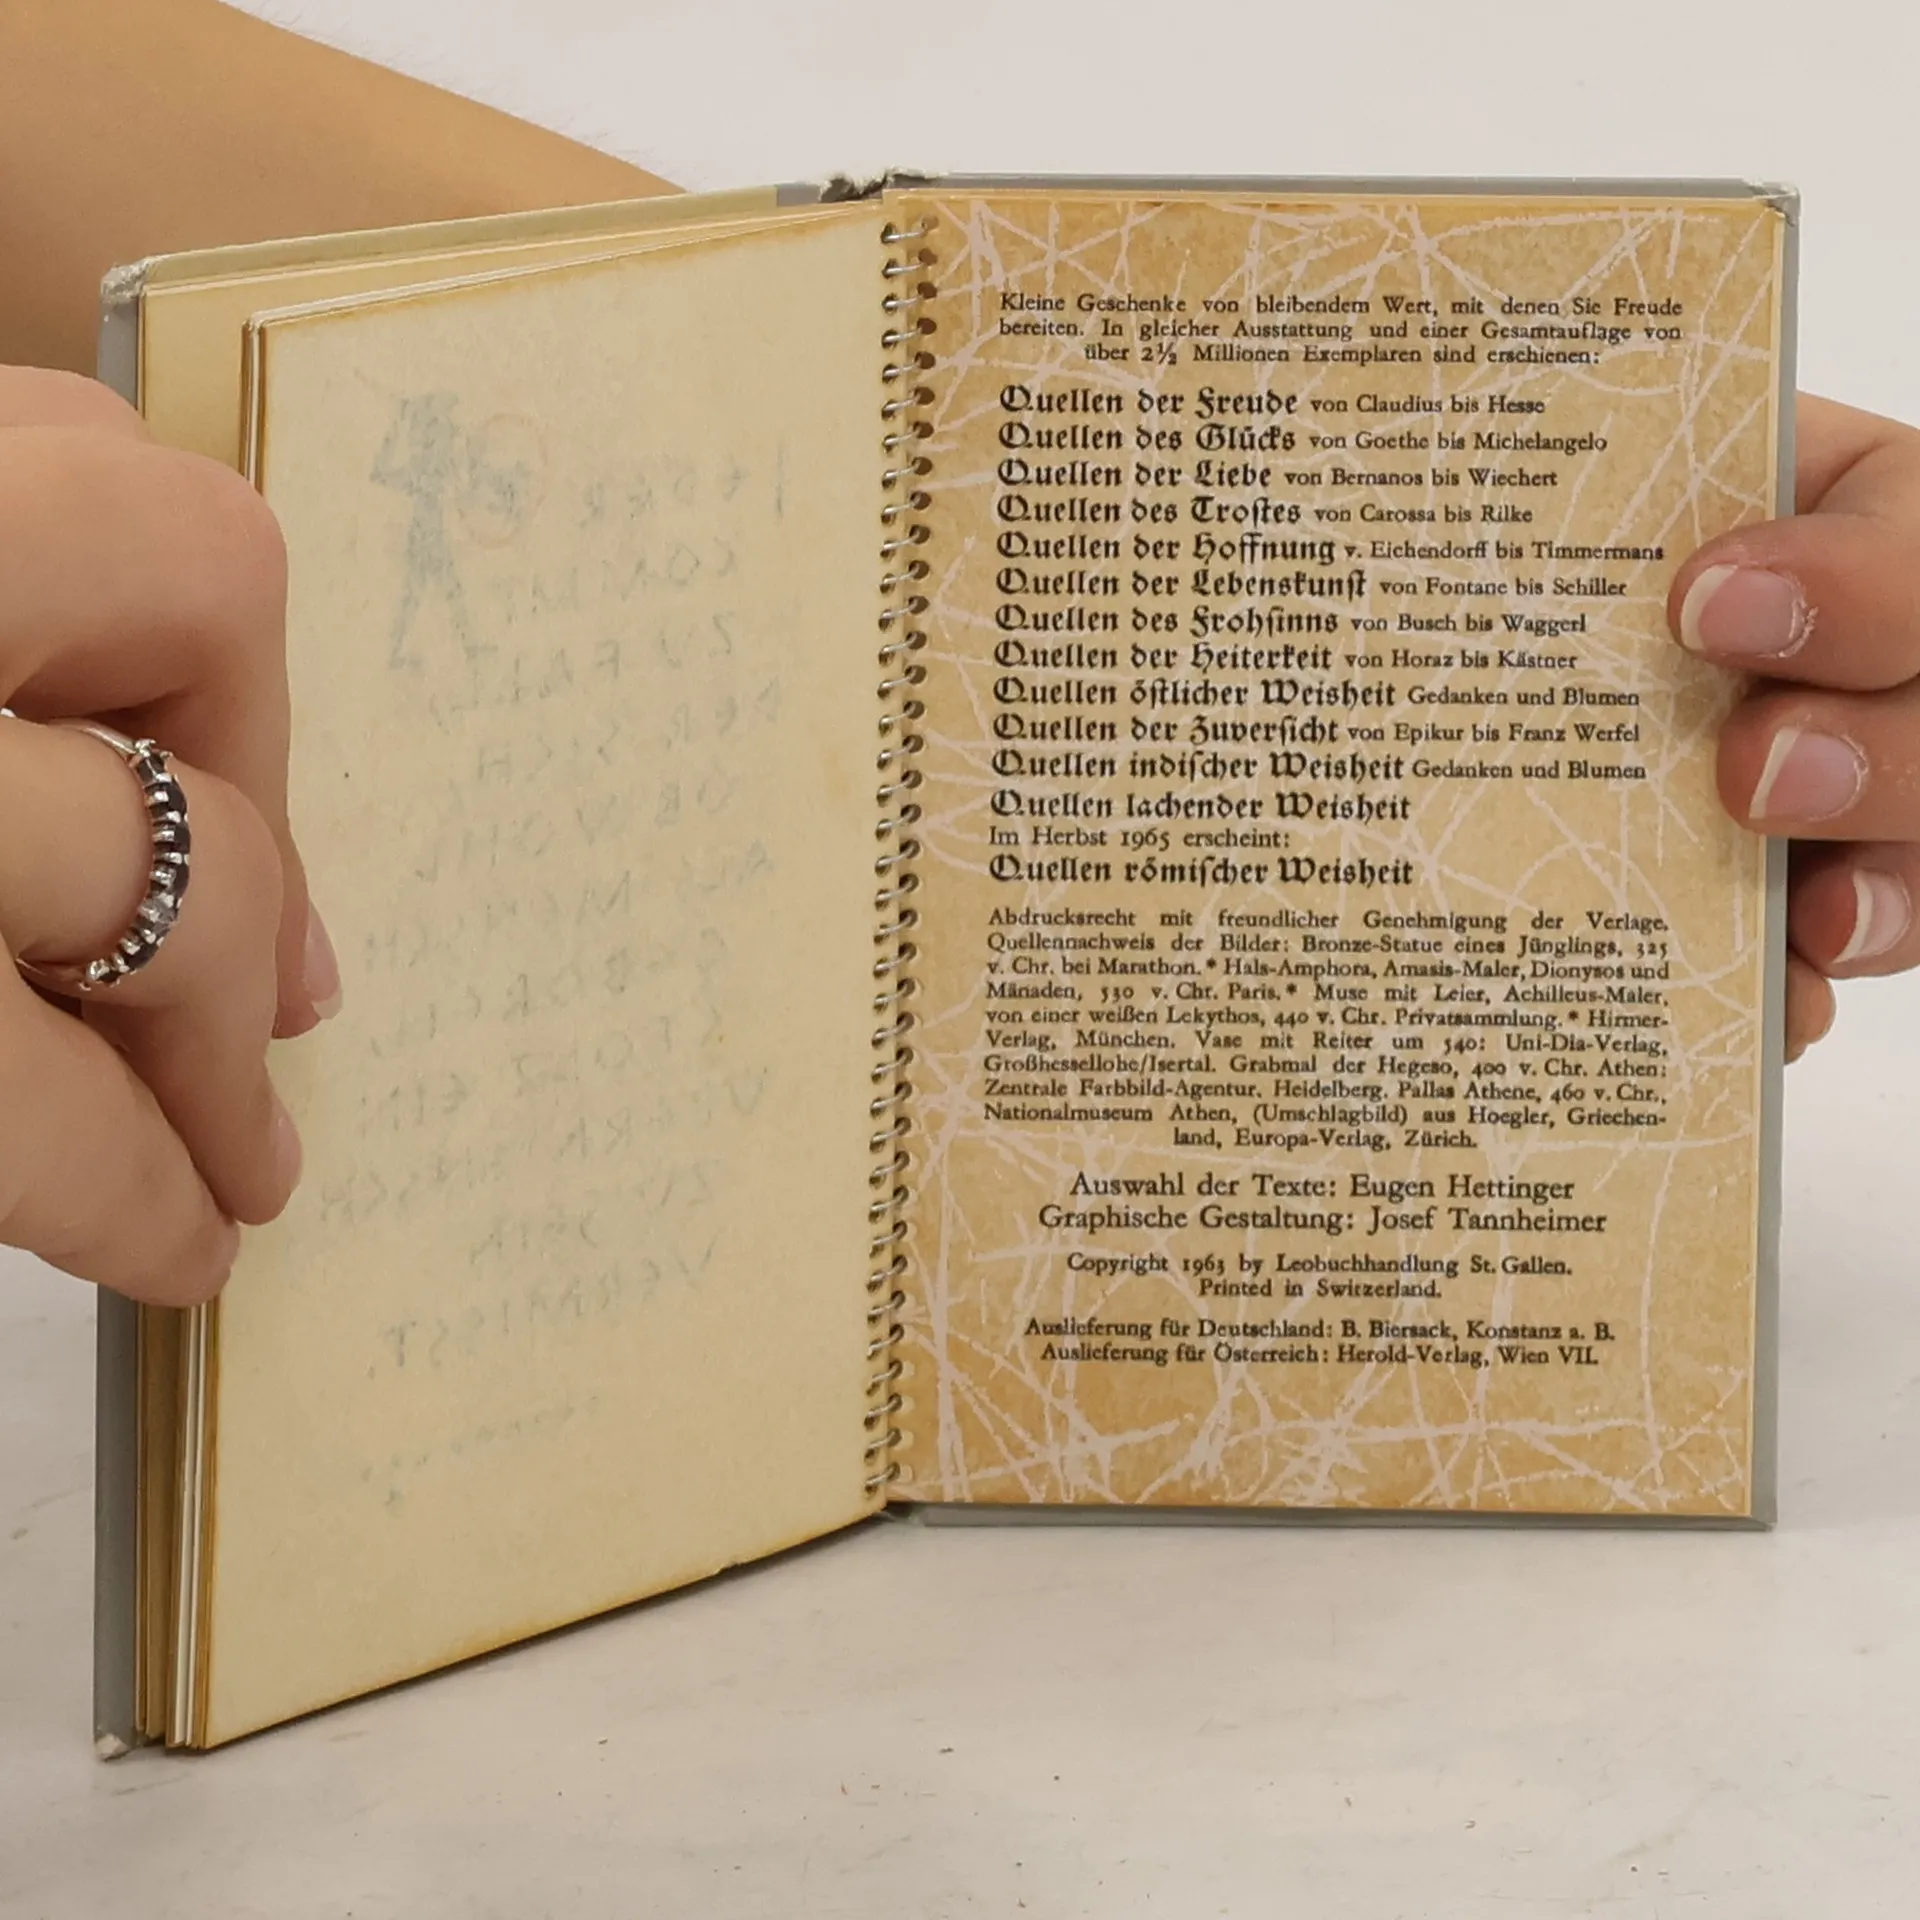 Kleine Geschenke von bleibendem Wert, mit denen Sie Freude
bereiten. In gleicher Ausstattung und einer Gesamtauflage von
über 2½ Millionen Exemplaren sind erschienen:
Quellen der Freude von Claudius bis Hesse
Quellen des Glücks von Goethe bis Michelangelo
Quellen der Liebe von Bernanos bis Wiechert
Quellen des Trostes von Carossa bis Rilke
Quellen der Hoffnung v. Eichendorff bis Timmermans
Quellen der Lebenskunst von Fontane bis Schiller
Quellen des Frohsinns von Busch bis Waggerl
Quellen der Heiterkeit von Horaz bis Kästner
Quellen östlicher Weisheit Gedanken und Blumen
Quellen der Zuversicht von Epikur bis Franz Werfel
Quellen indischer Weisheit Gedanken und Blumen
Quellen lachender Weisheit
Im Herbst 1965 erscheint:
Quellen römischer Weisheit
Abdrucksrecht mit freundlicher Genehmigung der Verlage.
Quellennachweis der Bilder: Bronze-Statue eines Jünglings, 325
v. Chr. bei Marathon.* Hals-Amphora, Amasis-Maler, Dionysos und
Mänaden, 530 v. Chr. Paris.* Muse mit Leier, Achilleus-Maler,
von einer weißen Lekythos, 440 v. Chr. Privatsammlung.* Hirmer-
Verlag, München. Vase mit Reiter um 540: Uni-Dia-Verlag,
Großhessellohe/Isertal. Grabmal der Hegeso, 400 v. Chr. Athen:
Zentrale Farbbild-Agentur, Heidelberg. Pallas Athene, 460 v. Chr.,
Nationalmuseum Athen, (Umschlagbild) aus Hoegler, Griechen-
land, Europa-Verlag, Zürich.
Auswahl der Texte: Eugen Hettinger
Graphische Gestaltung: Josef Tannheimer
Copyright 1963 by Leobuchhandlung St. Gallen.
Printed in Switzerland.
Auslieferung für Deutschland: B. Biersack, Konstanz a. B.
Auslieferung für Österreich: Herold-Verlag, Wien VII.